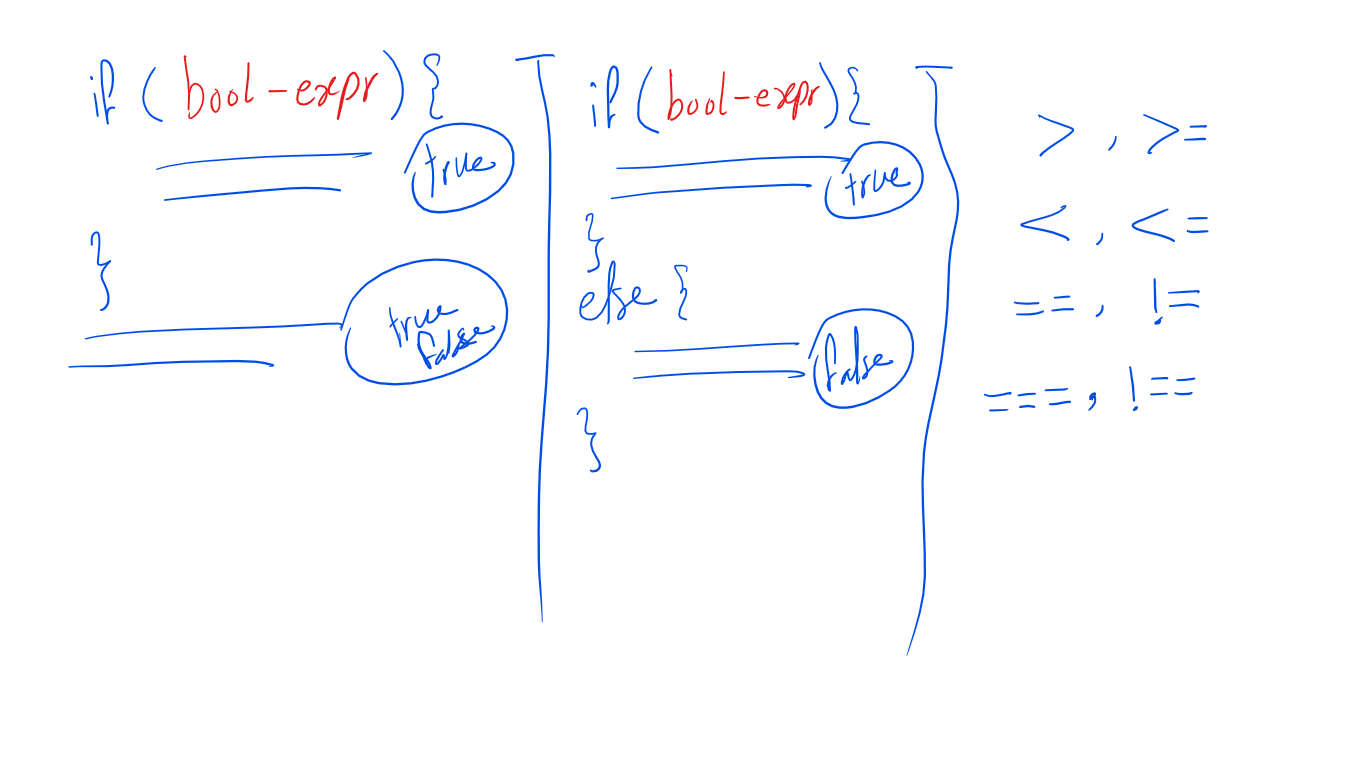 if ( bool-expr ) {
true
}
true
false
if ( bool-expr ) {
true
}
else {
false
}
> , >=
< , <=
== , !=
=== , !==